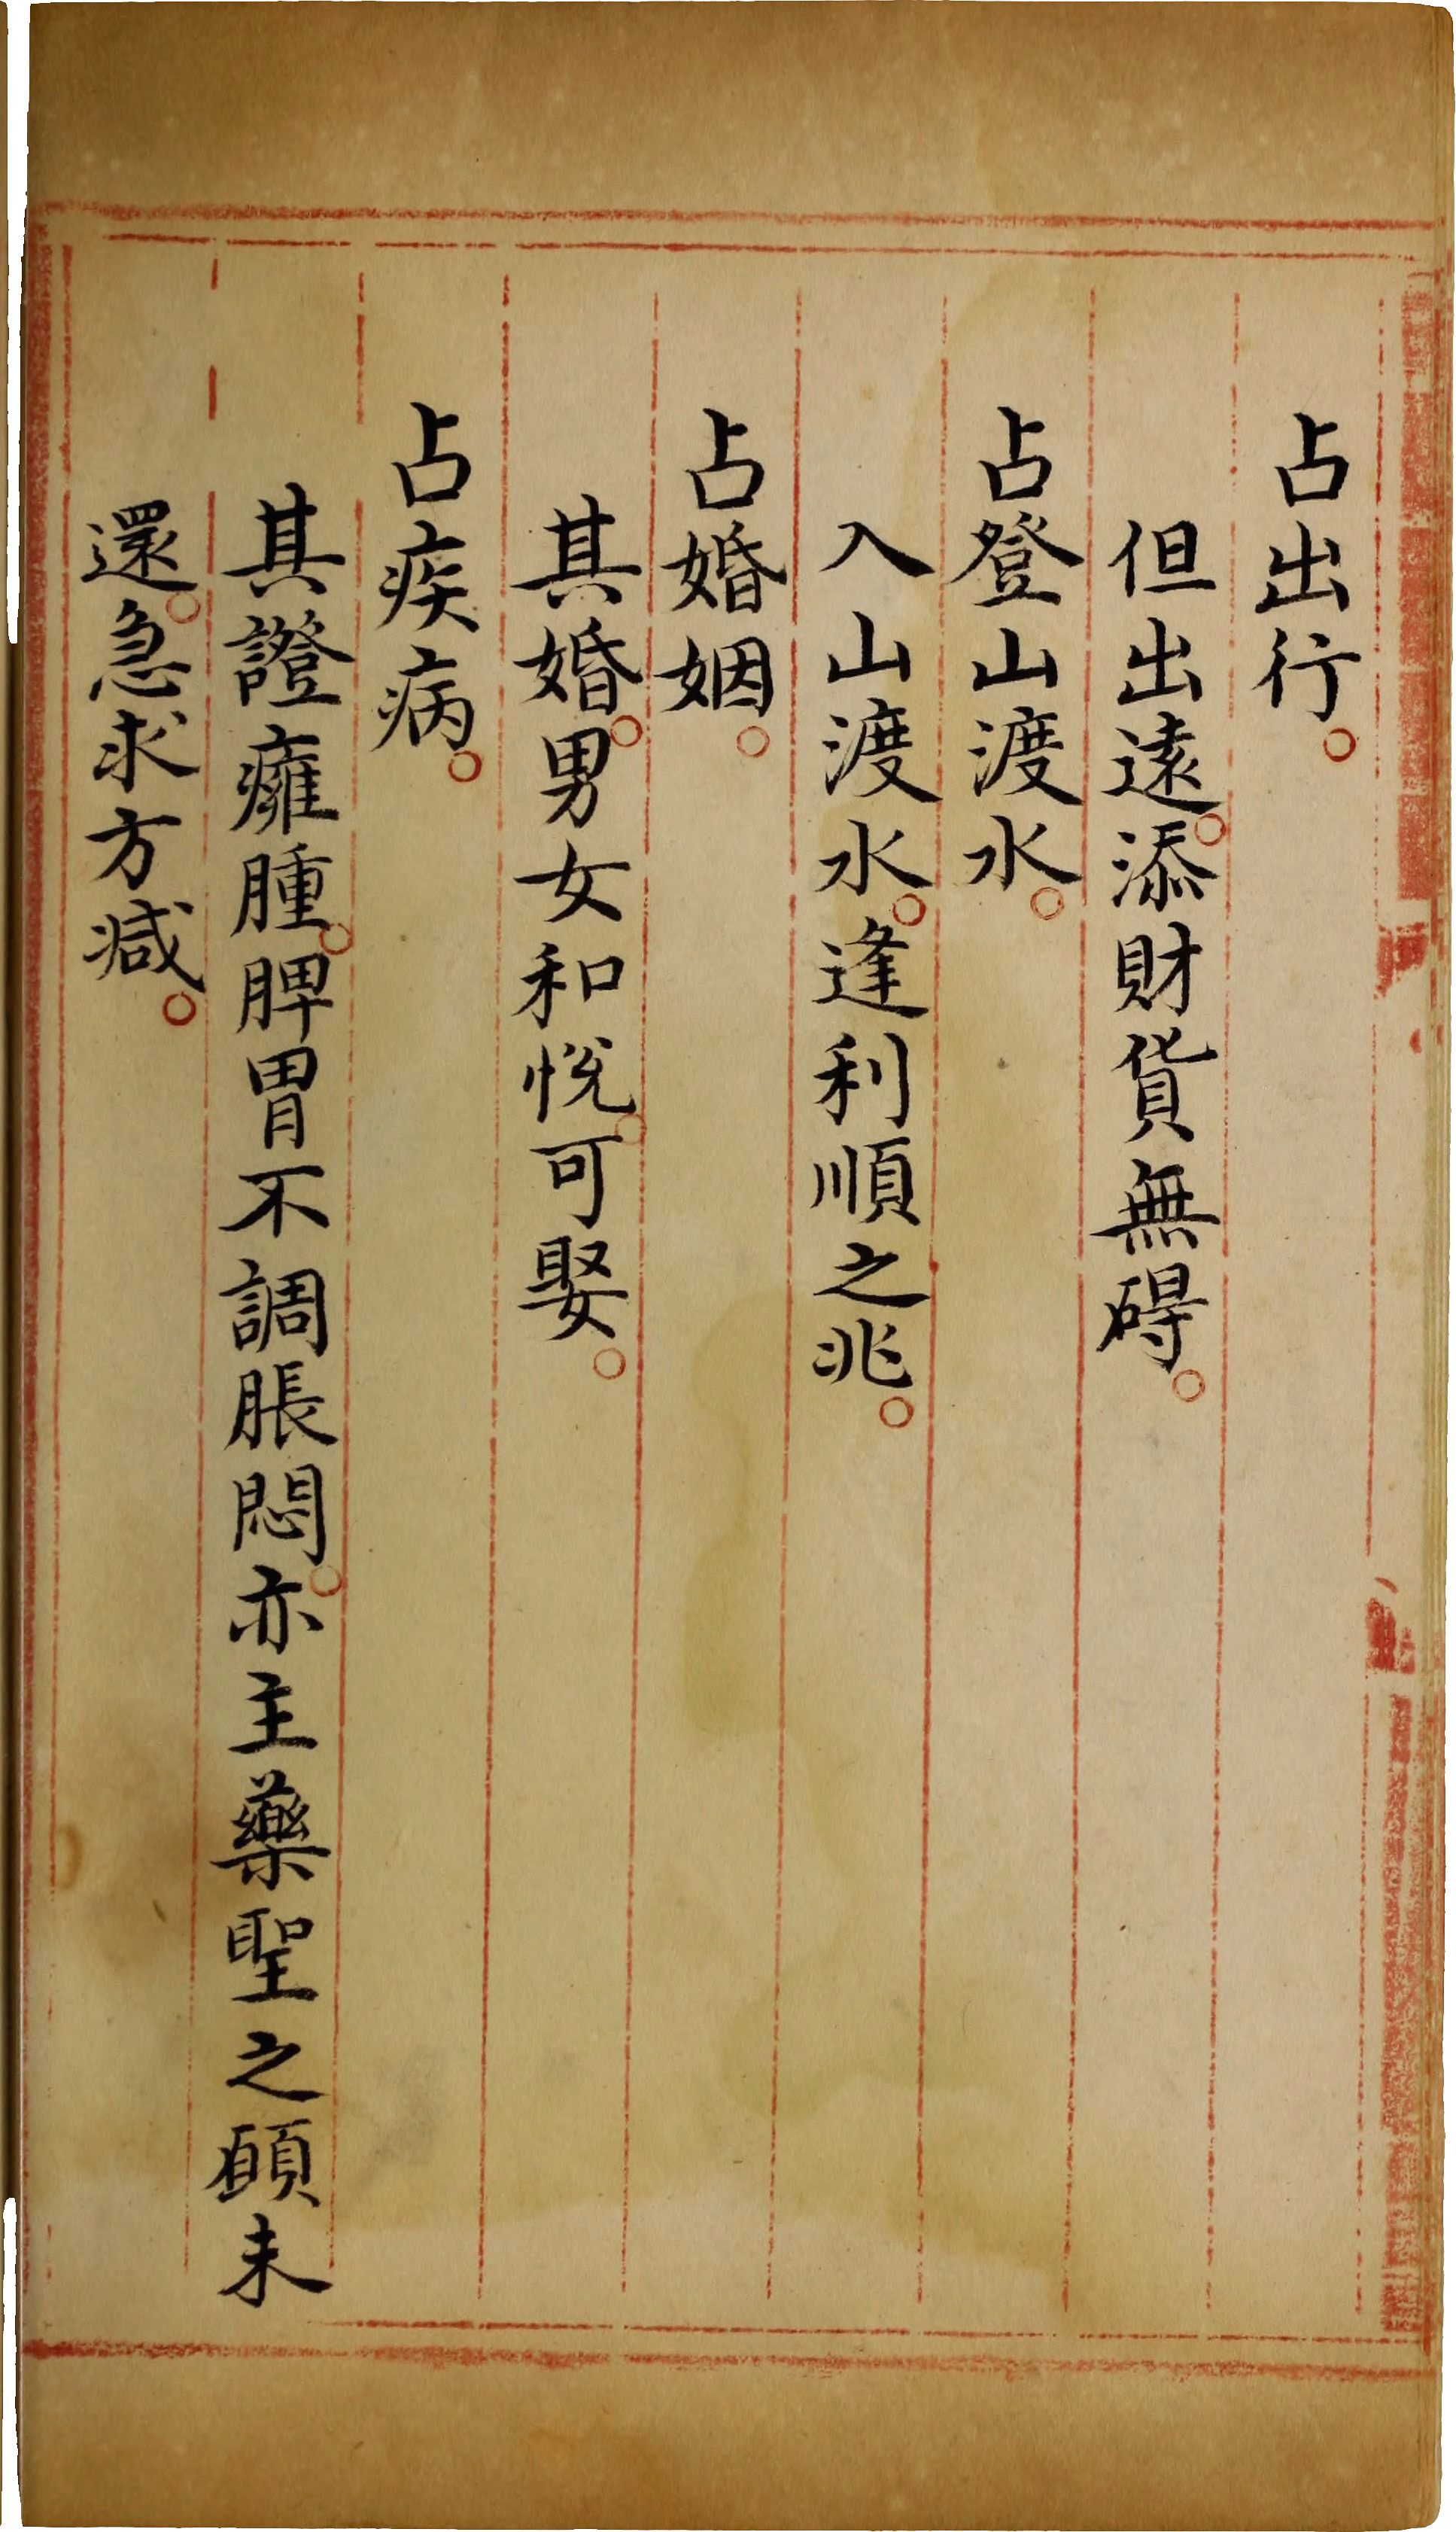 占出行。
但出遠。添財貨無碍。
占登山渡水。
入山渡水。逢利順之兆。
占婚姻。
其婚。男女和悅。可娶。
占疾病。
其證癰腫。脾胃不調脹悶。亦主藥聖之願未
還。急求方减。